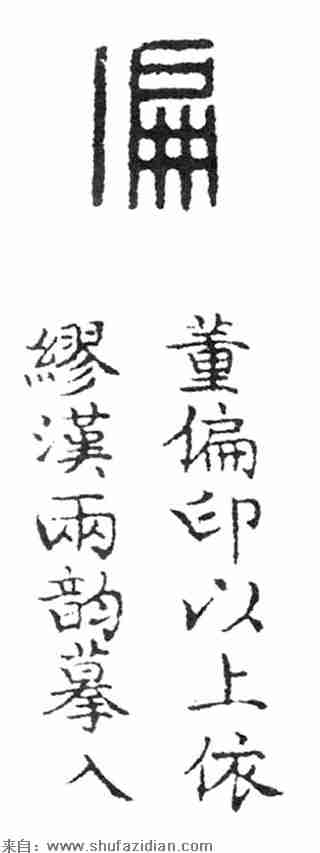 偏
董偏印以上依
繆漢兩韵摹入
来自：www.shufazidian.com